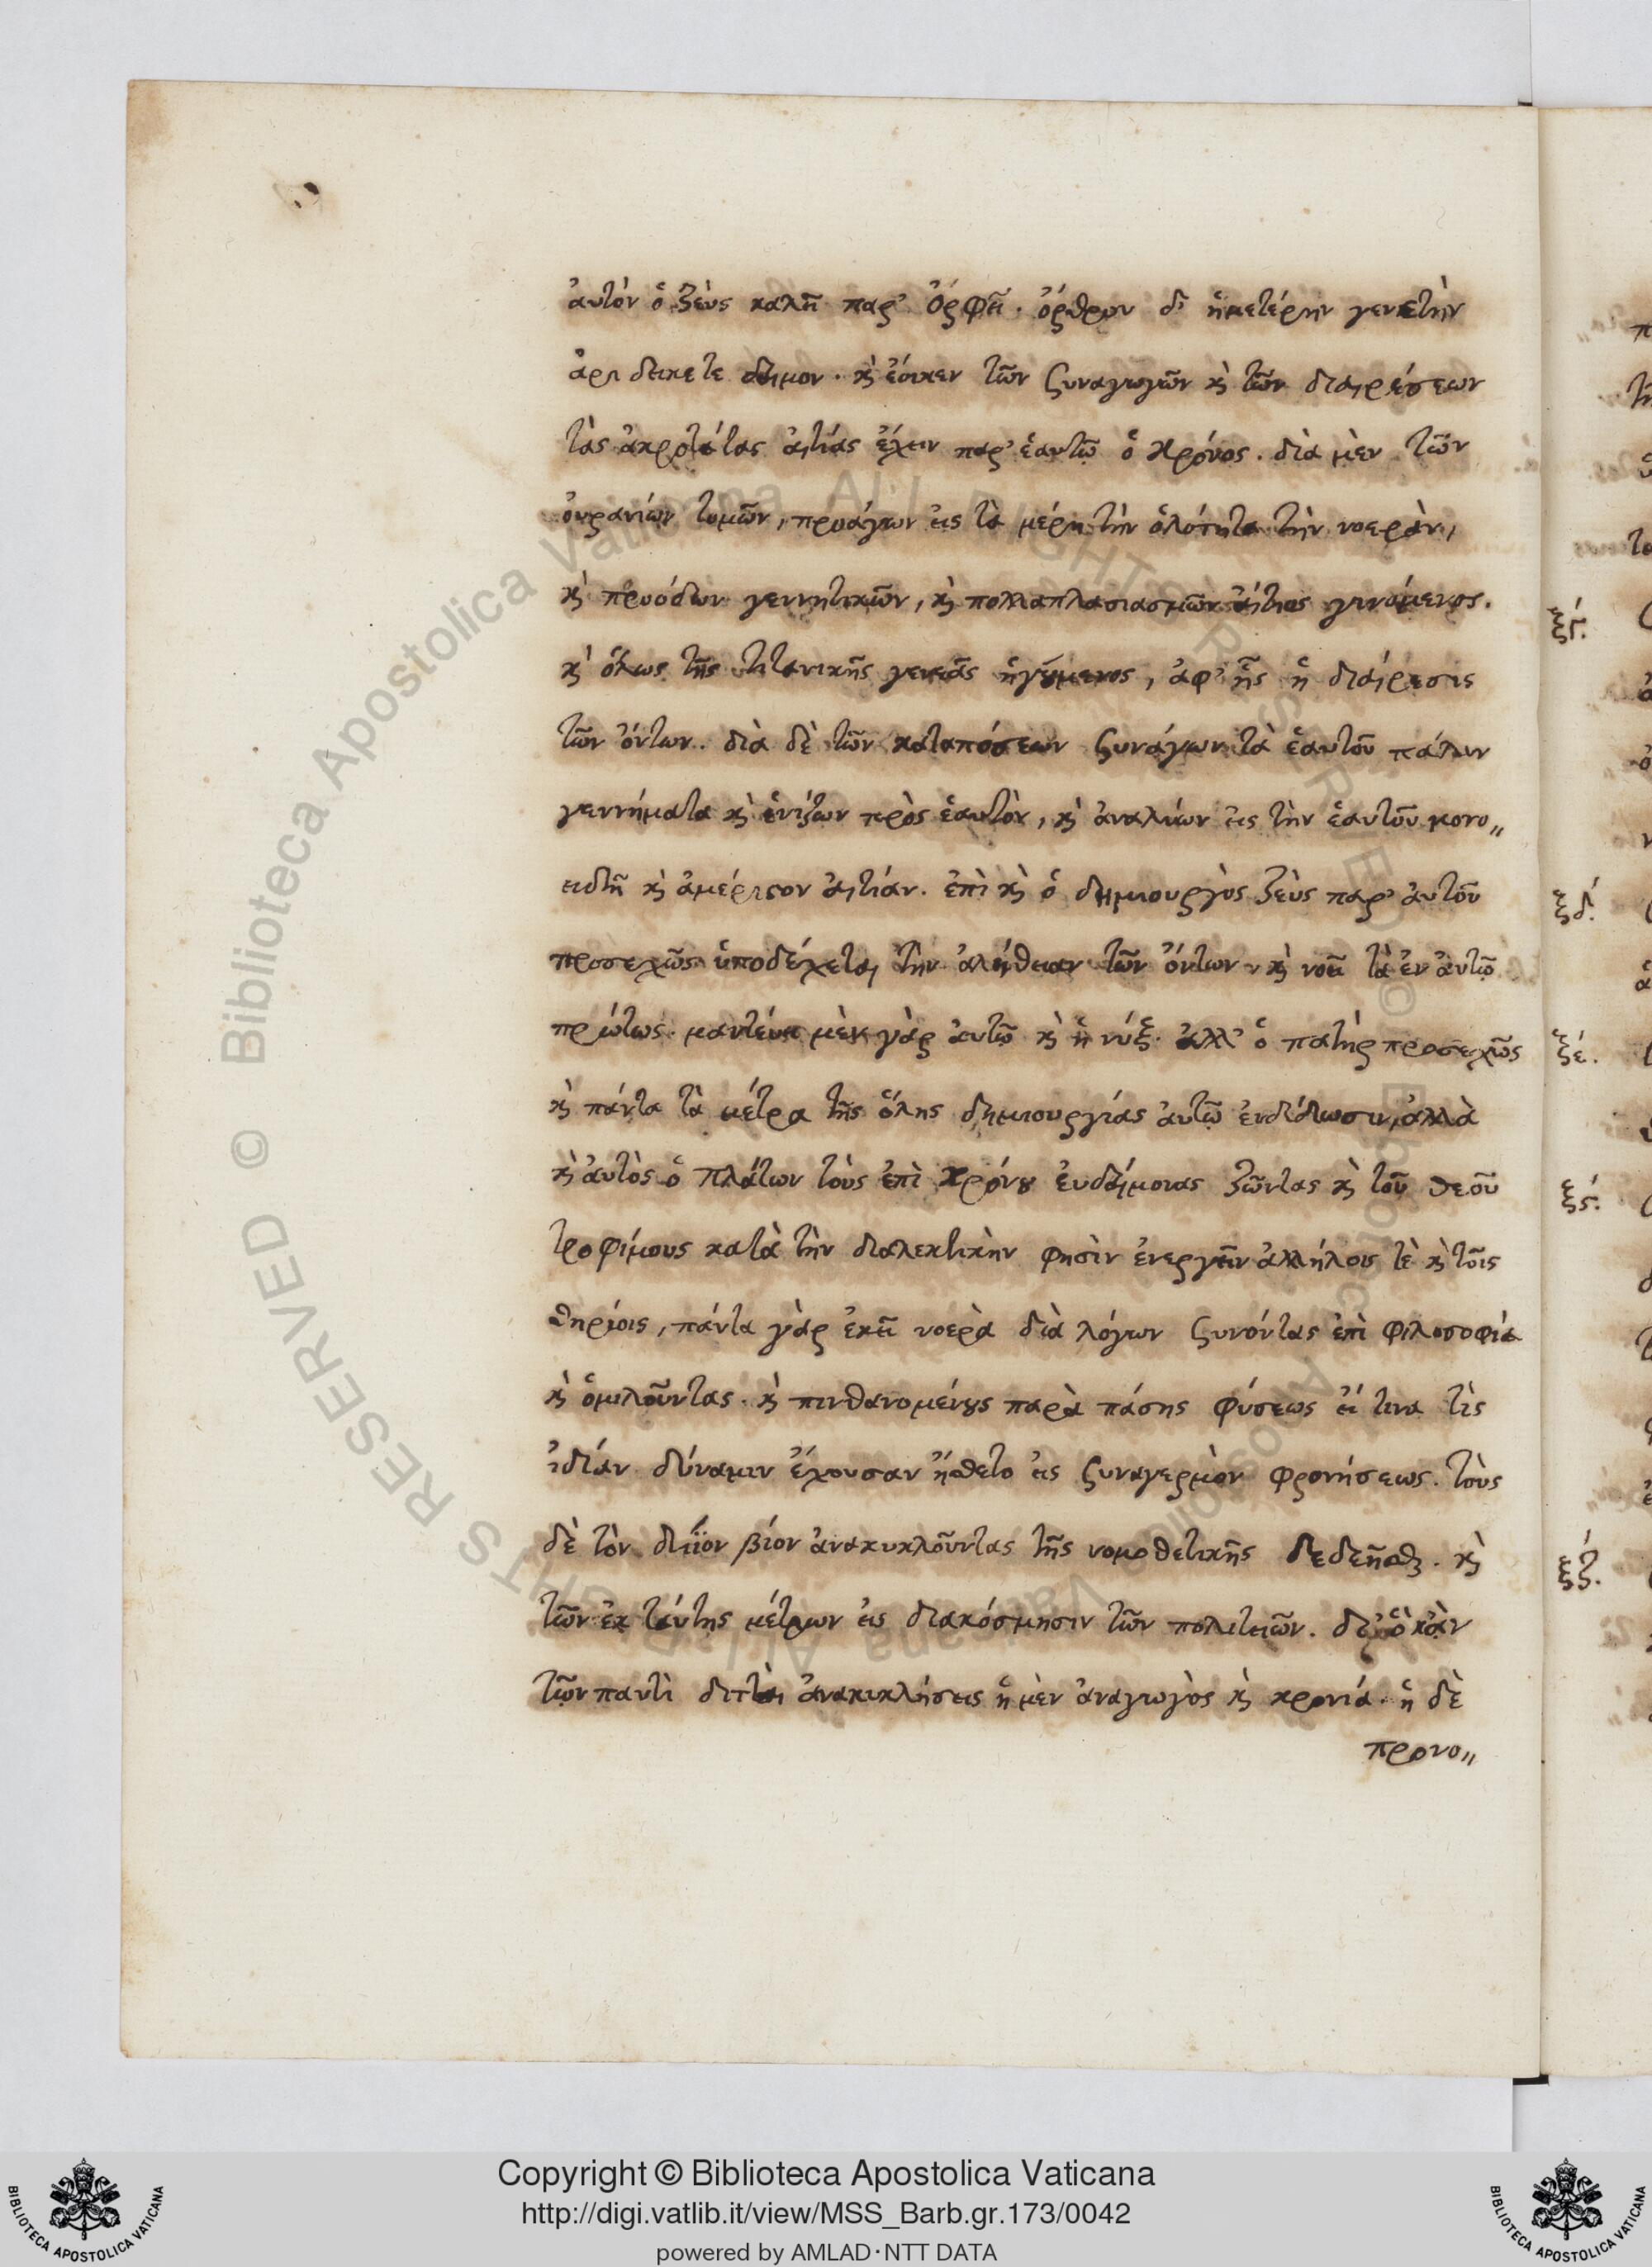 ἀυτὸν ὁ Ζεὺς καλεῖ παρ' Ὀρφεῖ. ὄρθρου δ' ἡμετέρην γενετὴν
ἀρι δείκετε δαῖμον. κỳ ἔοικεν τῶν ςυναγωγῶν κỳ τῶν διαιρέσεων
τὰς ἀκροτάτας ἀιτίας ἔχειν παρ' ἑαυτῷ ὁ Κρόνος. διὰ μὲν τῶν
ὀυρανίων τομῶν, προάγων ἐις τὰ μέρη τὴν ὁλότητα τὴν νοερὰν,
κỳ προόδων γεννητικῶν, κỳ πολλαπλασιασμῶν ἄιτιος γινόμενος.
κỳ ὅλως τῆς τιτανικῆς γενεᾶς ἡγούμενος, ἀφ' ἧς ἡ διαίρεσις
τῶν ὄντων. διὰ δὲ τῶν καταπόσεων ςυνάγων τὰ ἑαυτοῦ πάλιν
γεννήματα κỳ ἑνίζων πρὸς ἑαυτὸν, κỳ ἀναλύων ἐις τὴν ἑαυτοῦ μονο„
ειδῆ κỳ ἀμέριστον ἀιτίαν. ἐπὶ κỳ ὁ δημιουργὸς Ζεὺς παρ' ἀυτοῦ
προσεχῶς ὑποδέχεται τὴν ἀλήθειαν τῶν ὄντων. κỳ νοεῖ τὰ ἐν ἀυτῷ
πρώτως. μαντέυει μὲν γὰρ ἀυτῷ κỳ ἡ νύξ. ἀλλ' ὁ πατὴρ προσεχῶς
κỳ πάντα τὰ μέτρα τῆς ὅλης δημιουργίας ἀυτῷ ἐνδίδωσιν, ἀλλὰ
κỳ ἀυτὸς ὁ Πλάτων τὸυς ἐπὶ Κρόνου ἐυδαίμονας ζῶντας κỳ τοῦ θεοῦ
τροφίμους κατὰ τὴν διαλεκτικὴν φησὶν ἐνεργεῖν ἀλλήλοις τὲ κỳ τοῖς
θηρίοις, πάντα γὰρ ἐκεῖ νοερὰ διὰ λόγων ςυνόντας ἐπὶ φιλοσοφίᾳ
κỳ ὁμιλοῦντας. κỳ πινθανομένους παρὰ πάσης φύσεως ἔι τινα τὶς
ἰδίαν δύναμιν ἔχουσαν ἤσθετο ἐις ςυναγερμὸν φρονήσεως. τὸυς
δὲ τὸν δίϊον βίον ἀνακυκλοῦντας τῆς νομοθετικῆς δεδεῆσθαι. κỳ
τῶν ἐκ τάυτης μέτρων ἐις διακόσμησιν τῶν πολιτειῶν. δι' ὃ κἀν
τῷν παντὶ διτταὶ ἀνακυκλήσεις ἡ μὲν ἀναγωγὸς κỳ κρονία. ἡ δὲ
προνο„
ξγ΄.
ξδ΄.
ξέ.
ξς΄.
ξζ΄.
Copyright © Biblioteca Apostolica Vaticana
http://digi.vatlib.it/view/MSS_Barb.gr.173/0042
powered by AMLAD·NTT DATA